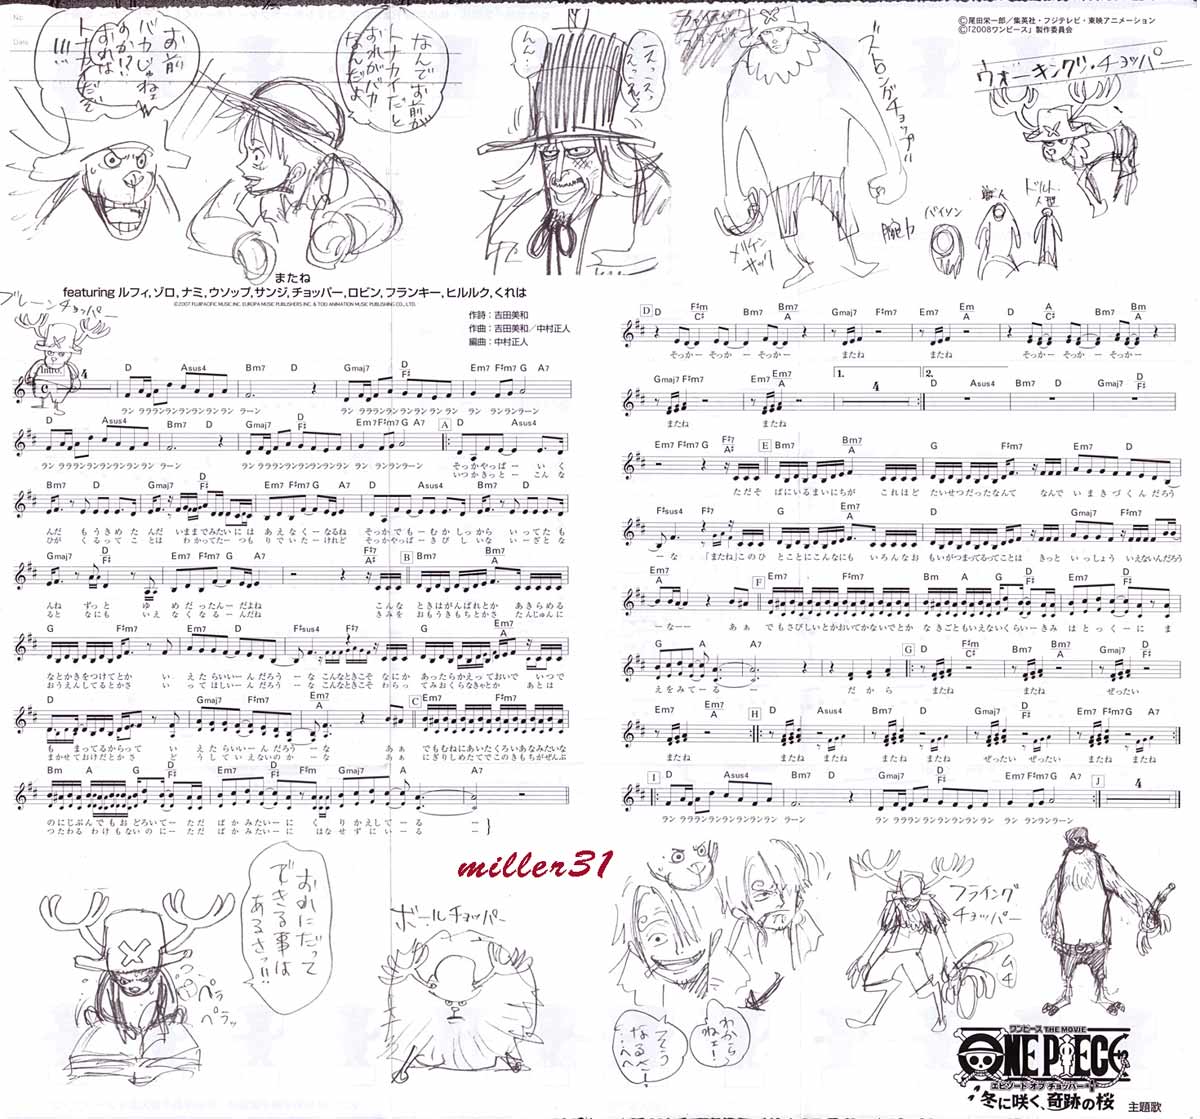 No.
Date
お前
バカじゃねェ
のか!?
おれは
トナカイだぞ
!!!
なんでお前が
トナカイだと
おれがバカ
なんだよ
ストロングチョッパー
©尾田栄一郎／集英社・フジテレビ・東映アニメーション
©「2008ワンピース」製作委員会
ウォーキングツ・チョッパー
バイソン
職人
ドルトン
人型
腕力
またね
featuring ルフィ,ゾロ,ナミ,ウソップ,サンジ,チョッパー,ロビン,フランキー,ヒルルク,くれは
©2007 FUJIPACIFIC MUSIC INC. EUROPA MUSIC PUBLISHERS INC. & TOEI ANIMATION MUSIC PUBLISHING CO., LTD.
ブレーンチョッパー
作詩：吉田美和
作曲：吉田美和／中村正人
編曲：中村正人
Intro. 4 D Asus4 Bm7 D Gmaj7 D/F♯ Em7 F♯m7 G A7
ラン ラララランランランランラン ラーン ラン ラララランランランラン ラン ランランラーン
D Asus4 Bm7 D Gmaj7 D/F♯ Em7 F♯m7 G A7 A D Asus4
ラン ラララランランランランラン ラーン ラン ラララランランランラン ラン ランランラーン そっかやっぱー いく
いつかきっとー こん な
Bm7 D Gmaj7 D/F♯ Em7 F♯m7 G A7 D Asus4 Bm7 D
んだ もうきめ たんだ いままでみたいには あえなくーなるね そっかでもーむか しっから いってた も
ひが くるってこ とは わかってたーつも りでいたーけれど そっかやっぱーきび しいな いーざとな
Gmaj7 D/F♯ Em7 F♯m7 G A7 F♯7/A♯ B Bm7 Bm7/A
んね ずっと ゆ めだったんーだよね こんな ときはがんばれとか あきらめる
ると なにも い えなくなるーんだね きみを おもうきもちとかさ たんじゅんに
G F♯m7 Em7 D F♯sus4 F♯7 G Bm7 Em7/A
なとかきをつけてとか い えたらいいーんだろうーな こんなときこそ なにか あったらかえっておいで いつで
おうえんしてるとかさ い ってほしいーんだろうーな こんなときこそ わらっ てみおくらなきゃとか あとは
D Gmaj7 F♯m7 Em7/A C Em7 F♯m7
も まってるからって い えたらいいーんだろうーな あぁ でもむねにあいたくろいあなみたいな
まかせておけだとかさ どうしていえないのかーな あぁ にぎりしめたてでこのきもちがぜんぶ
Bm A G D/F♯ Em7 F♯m7 Gmaj7 A A7
のにじぶんでもおどろいてー ただ ばかみたいーに くりかえしてーる ー
つたわる わけもないのにー ただ ばかみたいーに はなせずにいーる ー
D D F♯m/C♯ Bm7 Bm7/A Gmaj7 Em7 Em7/A D F♯m/C♯ Bm7 Bm7/A
そっかー そっかー そっかー またね またね そっかー そっかー そっかー そっかー
Gmaj7 F♯m7 Em7 Em7/A 1. 4 2. D Asus4 Bm7 D Gmaj7 D/F♯
またね またね
Em7 F♯m7 G F♯7/A♯ E Bm7 Bm7/A G F♯m7 Em7 D
ただそ ばにいるまいにちが これほど たいせつだったなんて なんで いまきづくんだろう
F♯sus4 F♯7 G Bm7 Em7/A D Gmaj7 F♯m7
ーな 「またね」このひ とことにこんなにも いろんなお もいがつまってるってことは きっと いっしょう いえないんだろう
Em7/A F Em7 F♯m7 Bm A G D/F♯ Em7 F♯m7
ーなーー あぁ でもさびしいとかおいてかないでとか なきごともいえないくらいーきみ はとっくーに ま
G A A7 G D F♯m/C♯ Bm7 Bm7/A Gmaj7
えをみてーるー だ から またね またね ぜったい
Em7 Em7/A H D Asus4 Bm7 D Gmaj7 D/F♯ Em7 F♯m7G A7
またね またね またね またね ぜったい ぜったい またね
I D Asus4 Bm7 D Gmaj7 D/F♯ Em7 F♯m7 G A7 J 4
ラン ラララランランランランラン ラーン ラン ラララランランランラン ラン ランランラーン
miller31
おれにだって
できる事は
あるさっ!!
ペラ
ペラッ
ボールチョッパー
わから
ねェー
フライング
チョッパー
ムキ
ワンピース THE MOVIE
ONE PIECE
エピソード オブ チョッパー+
冬に咲く、奇跡の桜
主題歌